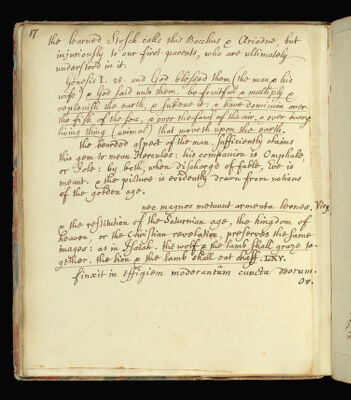 17
the learned Stosch calls this Bacchus & Ariadne, but
injuriously to our first parents, who are ultimately
understood in it.
Genesis I. 28. and God blessed them (the man & his
wife) & God said unto them. be fruitful & multiply &
replenish the earth, & subdue it: & have dominion over
the fish of the sea, & over the fowl of the air, & over every
living thing (animas) that moveth upon the earth.
the bearded aspect of the man, sufficiently obtains
this gem to mean Hercules: his companion is Omphale,
or Iole: by both, when discharg'd of fable, eve is
meant. & the picture is evidently drawn from notions
of the golden age.
nec magnos metuunt armenta leones. Virg.
& the restitution of the Saturnian age, the kingdom of
heaven, or the Christian revelation, preserves the same
images: as in Isaiah. the wolf & the lamb shall graze to-
gether. the lion & the lamb shall eat chaff. LXV.
finxit in effigiem moderantûm cuncta deorum.
Ov.